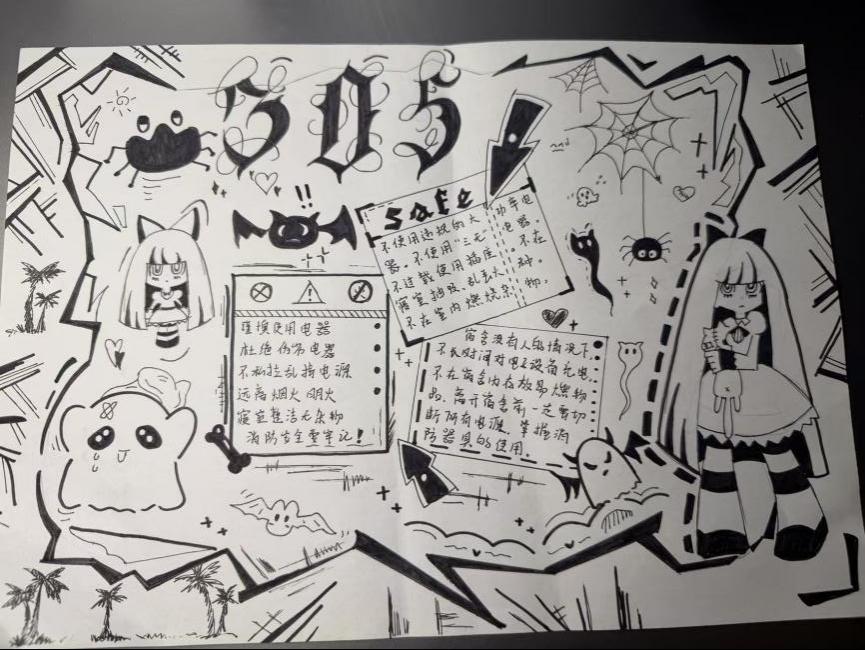 305
safe
不使用违规的大功率电
器,不使用“三无”电器,
不过载使用插座。不在
寝室抽烟,乱丢火种。
不在室内燃烧杂物,
谨慎使用电器
杜绝伪劣电器
不私拉乱接电源
远离烟火 明火
寝室整洁无杂物
消防安全要牢记!
宿舍没有人的情况下,
不长时间对电子设备充电,
不在宿舍内存放易燃物
品,离开宿舍前一定要切
断所有电源,掌握消
防器具的使用。